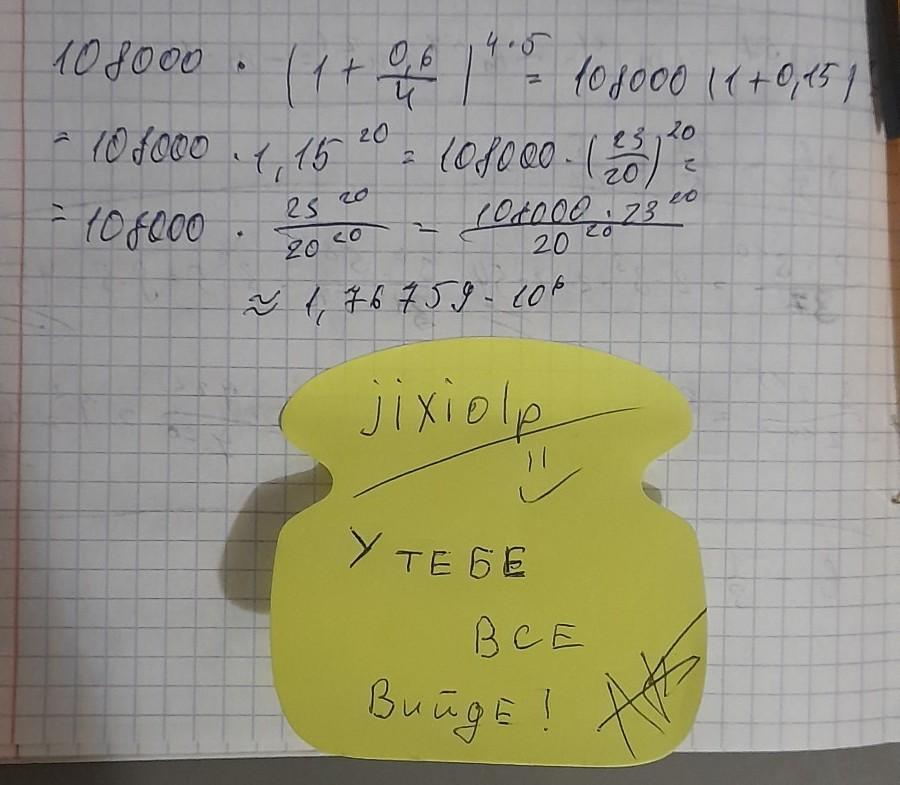 108000 · (1 + 0,6/4)^4·5 = 108000 (1+0,15)
= 108000 · 1,15^20 = 108000 · (23/20)^20 =
= 108000 · 23^20/20^20 = 108000 · 23^20/20^20
≈ 1,76759 · 10^6
jixiolp
У ТЕБЕ
ВСЕ
Вийде!